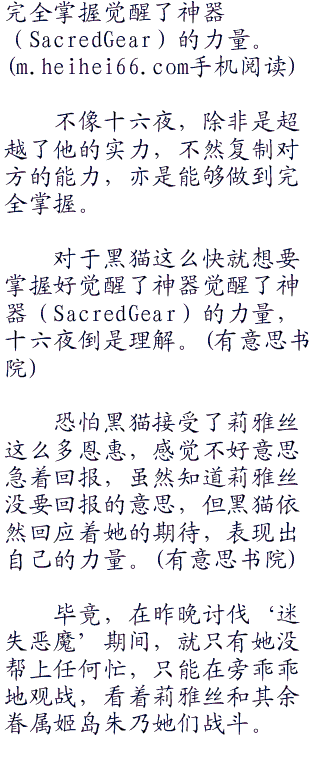 完全掌握觉醒了神器
（SacredGear）的力量。
(m.heihei66.com手机阅读)
不像十六夜，除非是超
越了他的实力，不然复制对
方的能力，亦是能够做到完
全掌握。
对于黑猫这么快就想要
掌握好觉醒了神器觉醒了神
器（SacredGear）的力量，
十六夜倒是理解。(有意思书
院)
恐怕黑猫接受了莉雅丝
这么多恩惠，感觉不好意思
急着回报，虽然知道莉雅丝
没要回报的意思，但黑猫依
然回应着她的期待，表现出
自己的力量。(有意思书院)
毕竟，在昨晚讨伐‘迷
失恶魔’期间，就只有她没
帮上任何忙，只能在旁乖乖
地观战，看着莉雅丝和其余
眷属姬岛朱乃她们战斗。